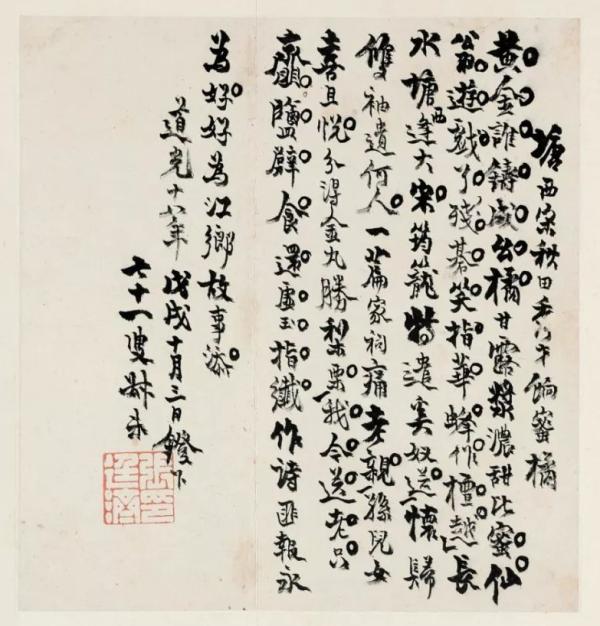 塘西宋秋田餉蜜橘
黃金誰鑄成出橘甘露漿濃甜比蜜仙
翁遊戲了殘碁笑指華蜂作檀越長
水塘西逢大宋筠籠特遣奚奴送懷歸
雙袖遺何人一薦家祠痛老親孫兒女
喜且悅分得金丸勝梨栗我今送老只
齏鹽辟食還虛玉指纖作詩匪報永
為好好為江鄉故事添
道光十八年戊戌十月三日鐙下
七十一叟叔未
張廷濟印